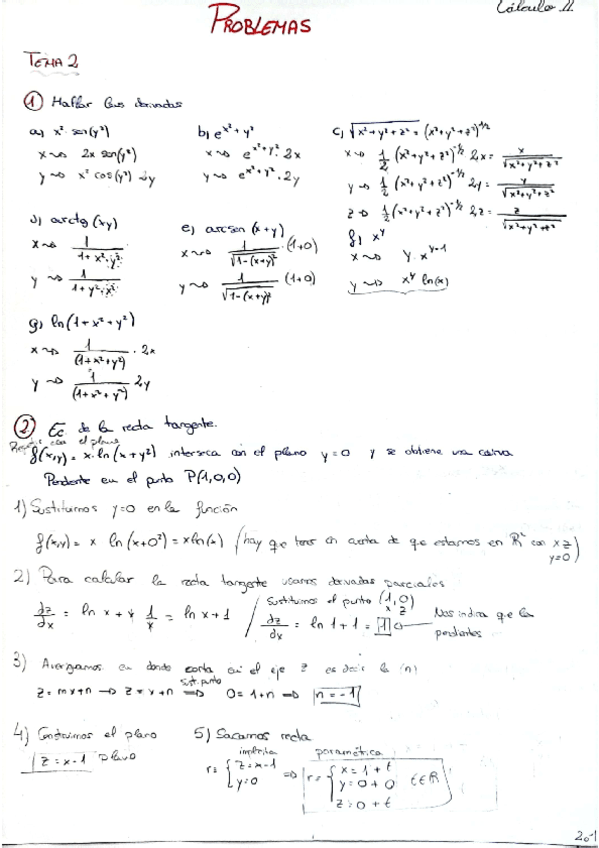 Cálculo II
PROBLEMAS
TEMA 2
① Hallar las derivadas
a) x² sen(y²)
x ⇝ 2x sen(y²)
y ⇝ x² cos(y²) 2y
b) e^{x²+y²}
x ⇝ e^{x²+y²} · 2x
y ⇝ e^{x²+y²} · 2y
c) √(x²+y²+z²) = (x²+y²+z²)^{1/2}
x ⇝ 1/2 (x²+y²+z²)^{-1/2} 2x = x/√(x²+y²+z²)
y ⇝ 1/2 (x²+y²+z²)^{-1/2} 2y = y/√(x²+y²+z²)
z ⇝ 1/2 (x²+y²+z²)^{-1/2} 2z = z/√(x²+y²+z²)
d) arctg(xy)
x ⇝ 1/(1+x²·y²)
y ⇝ 1/(1+y²·x²)
e) arcsen(x+y)
x ⇝ 1/√(1-(x+y)²) · (1+0)
y ⇝ 1/√(1-(x+y)²) (1+0)
f) x^y
x ⇝ y · x^{y-1}
y ⇝ x^y ln(x)
g) ln(1+x²+y²)
x ⇝ 1/(1+x²+y²) · 2x
y ⇝ 1/(1+x²+y²) 2y
② Ec de la recta tangente.
con el plano
f(x,y) = x·ln(x+y²) interseca con el plano y=0 y se obtiene una curva
Pendente en el punto P(1,0,0)
1) Sustituimos y=0 en la función
f(x,y) = x ln(x+0²) = x ln(x) (hay que tener en cuenta de que estamos en R² con xz)
y=0
2) Para calcular la recta tangente usamos derivadas parciales
dz/dx = ln x + x 1/x = ln x + 1 / Sustituimos el punto (1,0)
x z
dz/dx = ln 1 + 1 = 1
Nos indica que la
pendiente
3) Averiguamos en donde corta en el eje z es decir la (n)
sust. punto
z = mx+n → z = x+n ⇒ 0 = 1+n ⇒ n = -1
4) Construimos el plano
z = x-1 plano
5) Sacamos recta
implícita
r ≡ { z = x-1
y = 0
⇒
paramétrica
r ≡ { x = 1 + t
y = 0 + 0 t∈R
z = 0 + t
2.1